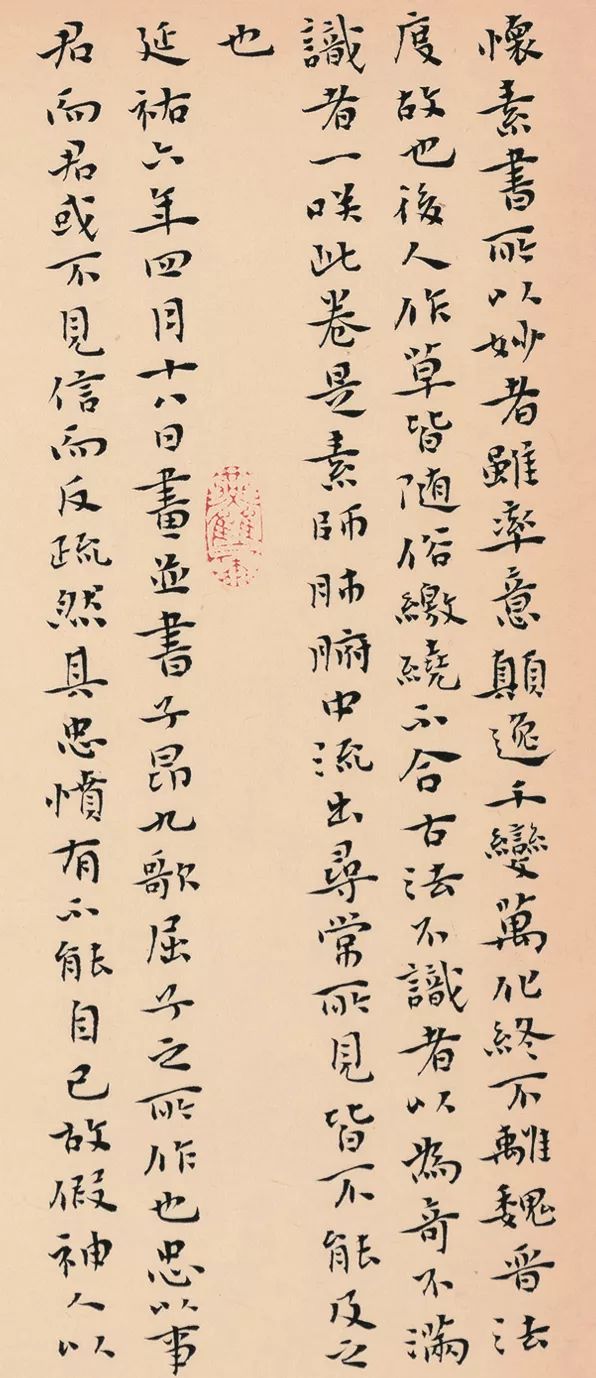 懷素書所以妙者雖率意顛逸千變萬化終不離魏晉法
度故也後人作草皆隨俗繳繞不合古法不識者以為奇不滿
識者一咲此卷是素師肺腑中流出尋常所見皆不能及之
也
延祐六年四月十八日畫並書子昂九歌屈子之所作也忠以事
君而君或不見信而反疏然其忠憤有不能自已故假神人以